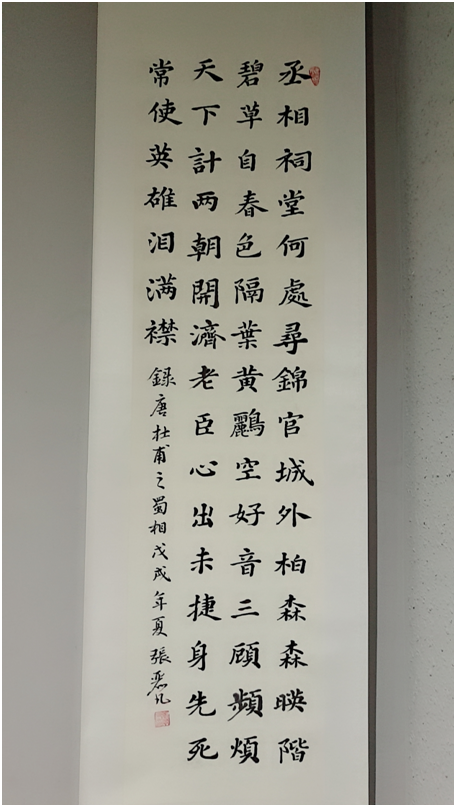 丞相祠堂何處尋錦官城外柏森森暎階
碧草自春色隔葉黄鸝空好音三顧頻煩
天下計两朝開濟老臣心出未捷身先死
常使英雄泪满襟
録唐杜甫之蜀相戊戌年夏張